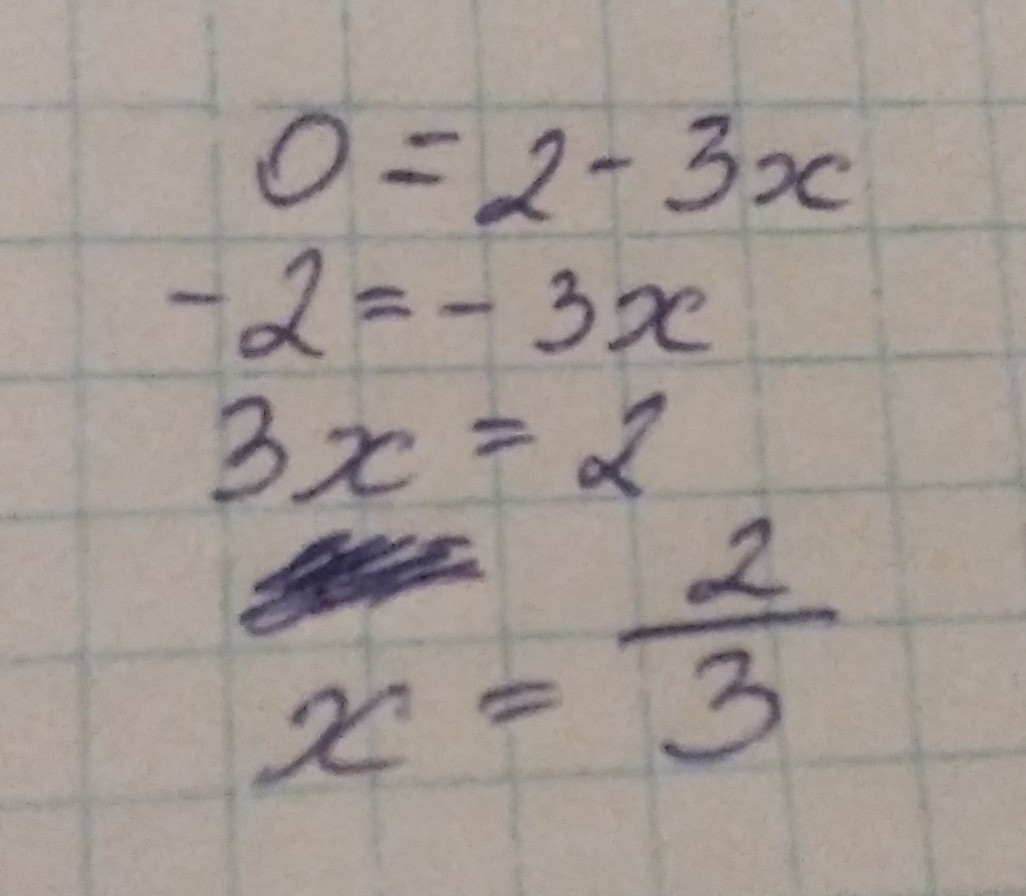 0 = 2 - 3x
-2 = - 3x
3x = 2
x = 2/3